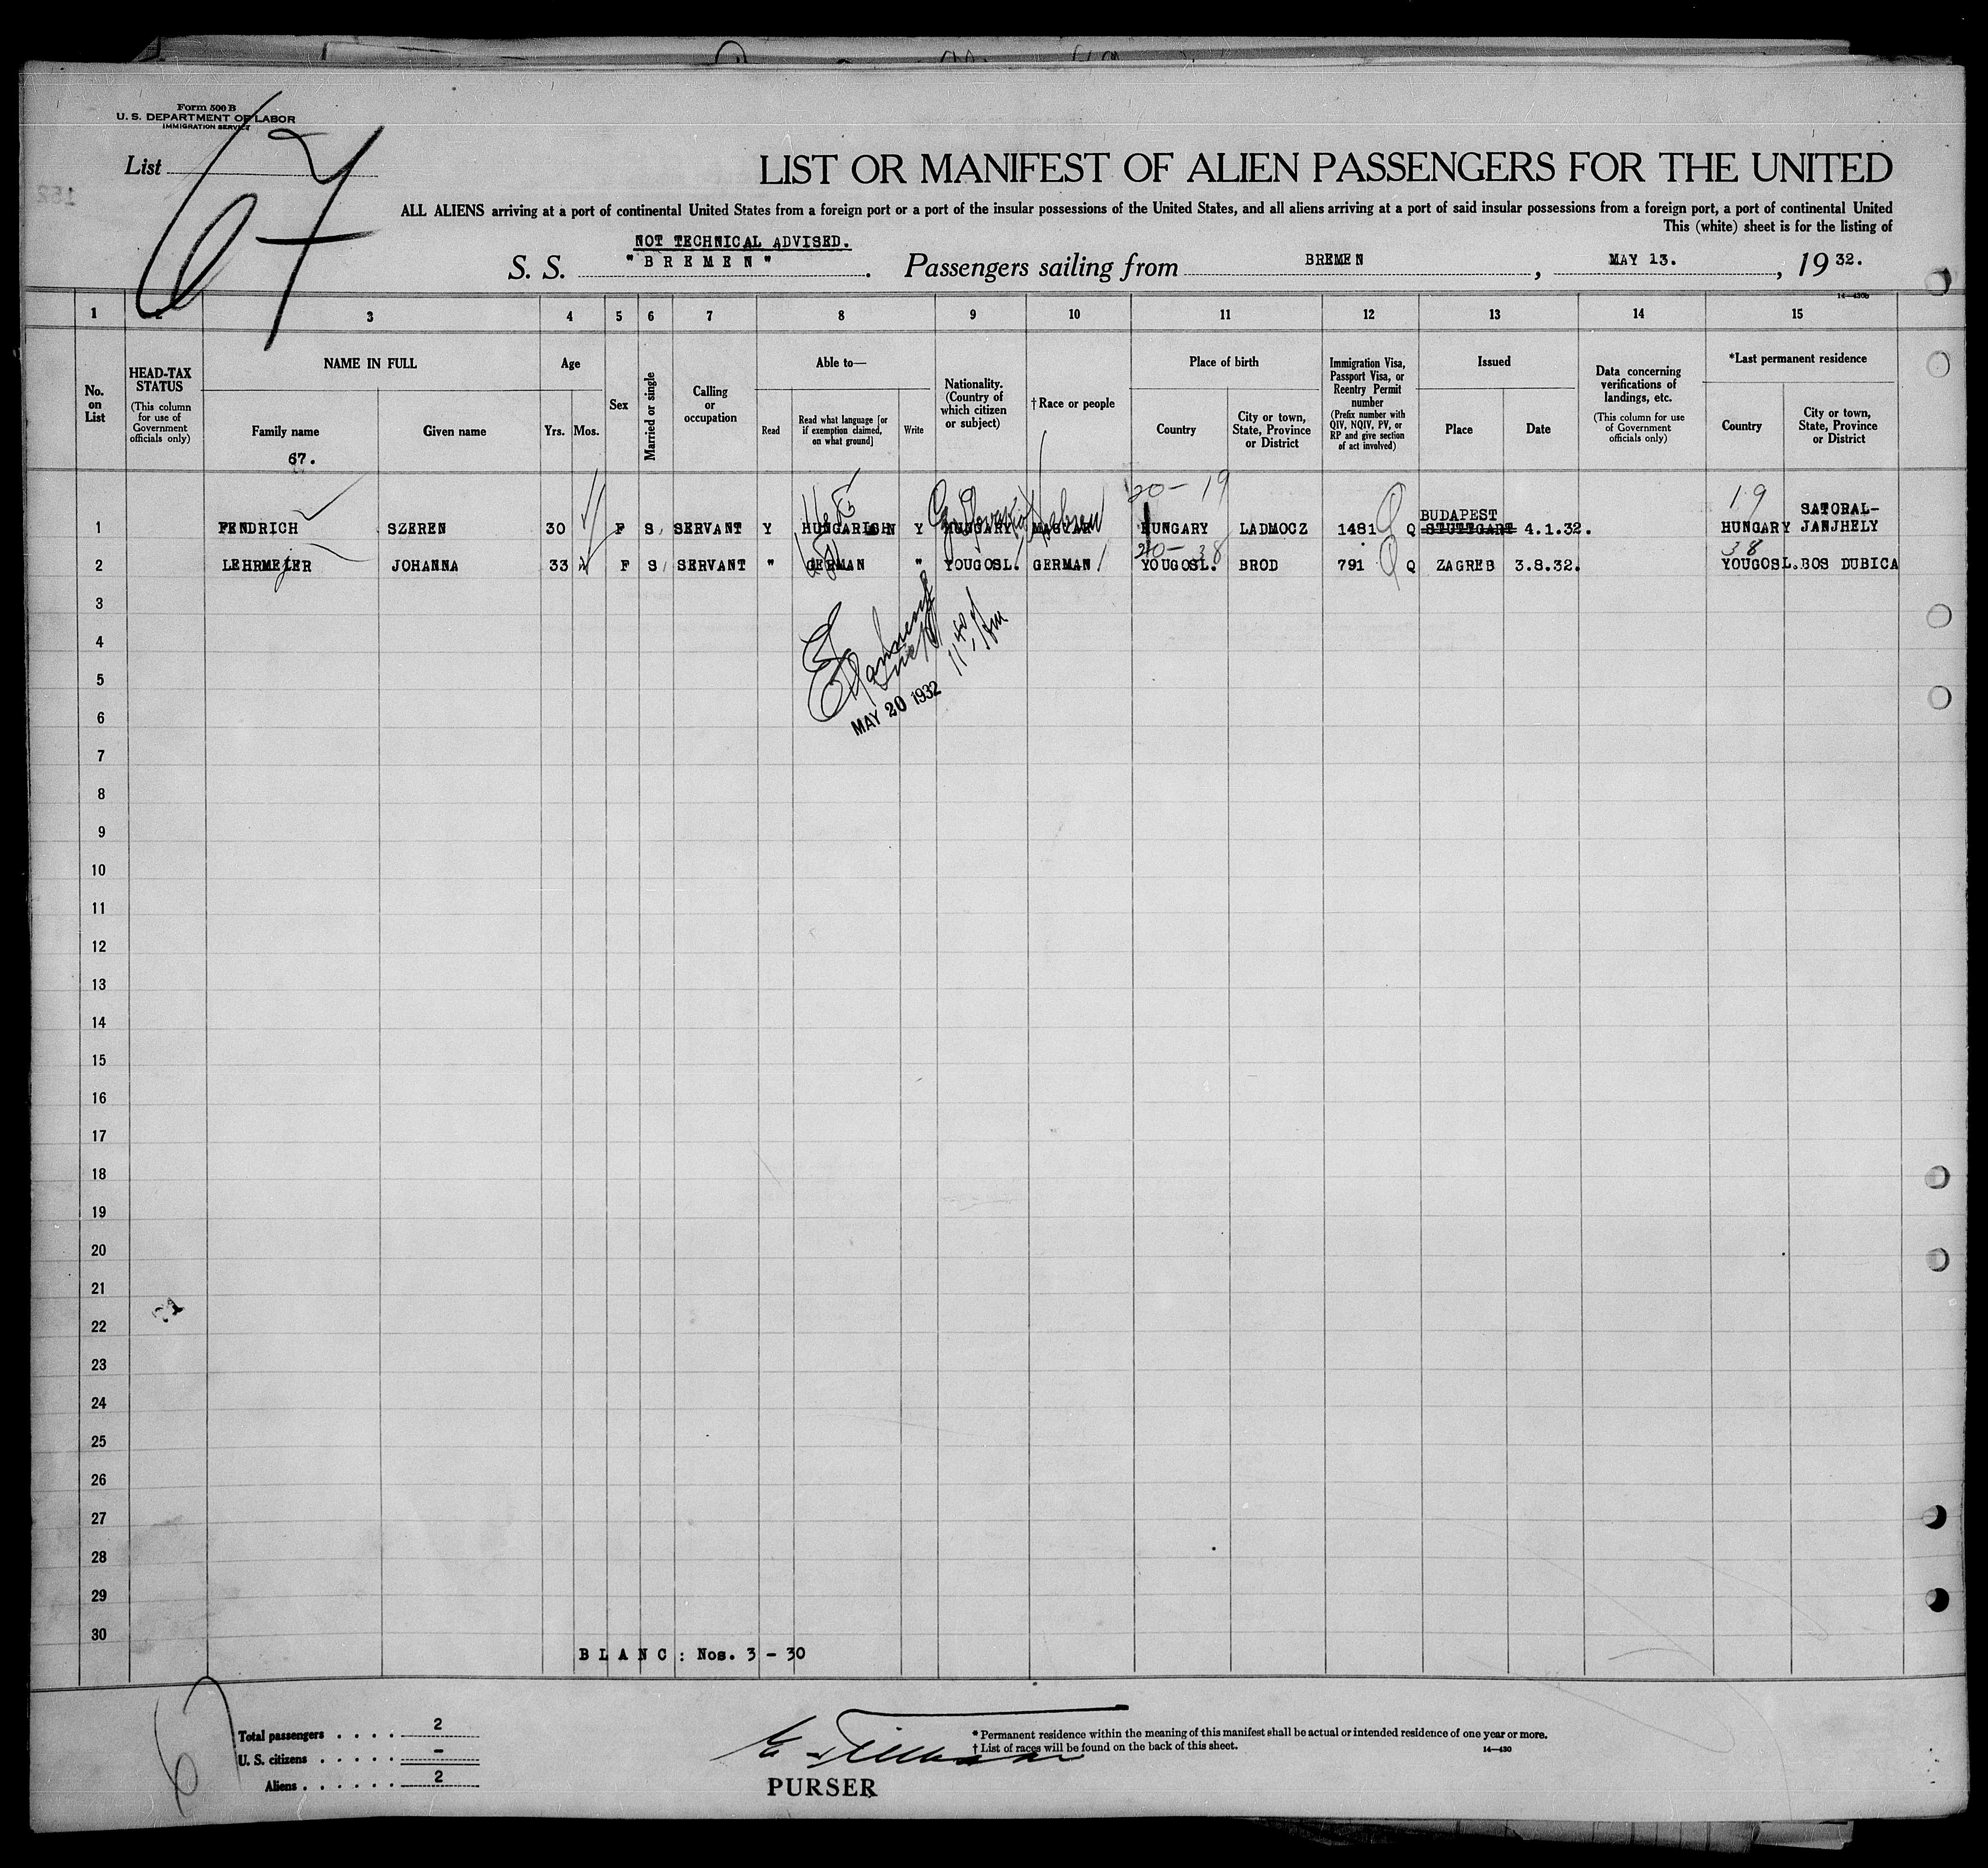 Form 500 B
U. S. DEPARTMENT OF LABOR
IMMIGRATION SERVICE
List
67
LIST OR MANIFEST OF ALIEN PASSENGERS FOR THE UNITED
ALL ALIENS arriving at a port of continental United States from a foreign port or a port of the insular possessions of the United States, and all aliens arriving at a port of said insular possessions from a foreign port, a port of continental United
This (white) sheet is for the listing of
NOT TECHNICAL ADVISED.
S. S. "BREMEN". Passengers sailing from BREMEN, MAY 13., 19 32.
14—430b
1 2 3 4 5 6 7 8 9 10 11 12 13 14 15
No. on List
HEAD-TAX STATUS (This column for use of Government officials only)
NAME IN FULL
Family name
Given name
67.
Age
Yrs. Mos.
Sex
Married or single
Calling or occupation
Able to—
Read
Read what language [or if exemption claimed, on what ground]
Write
Nationality. (Country of which citizen or subject)
†Race or people
Place of birth
Country
City or town, State, Province or District
Immigration Visa, Passport Visa, or Reentry Permit number (Prefix number with QIV, NQIV, PV, or RP and give section of act involved)
Issued
Place
Date
Data concerning verifications of landings, etc. (This column for use of Government officials only)
*Last permanent residence
Country
City or town, State, Province or District
20 - 19
19
BUDAPEST
SATORAL-
1 FENDRICH SZEREN 30 F S SERVANT Y HUNGARIAN Y HUNGARY MAGYAR Hebrew HUNGARY LADMOCZ 1481 Q STUTTGART 4.1.32. HUNGARY JANJHELY
20 - 38
38
2 LEHRMEJER JOHANNA 33 F S SERVANT " GERMAN " YOUGOSL. GERMAN YOUGOSL. BROD 791 Q ZAGREB 3.8.32. YOUGOSL. BOS DUBICA
3
4
5
6
MAY 20 1932
7
8
9
10
11
12
13
14
15
16
17
18
19
20
21
22
23
24
25
26
27
28
29
30
BLANC: Nos. 3 - 30
Total passengers . . . . 2
U. S. citizens . . . . . -
Aliens . . . . . . 2
PURSER
* Permanent residence within the meaning of this manifest shall be actual or intended residence of one year or more.
† List of races will be found on the back of this sheet.
14—430